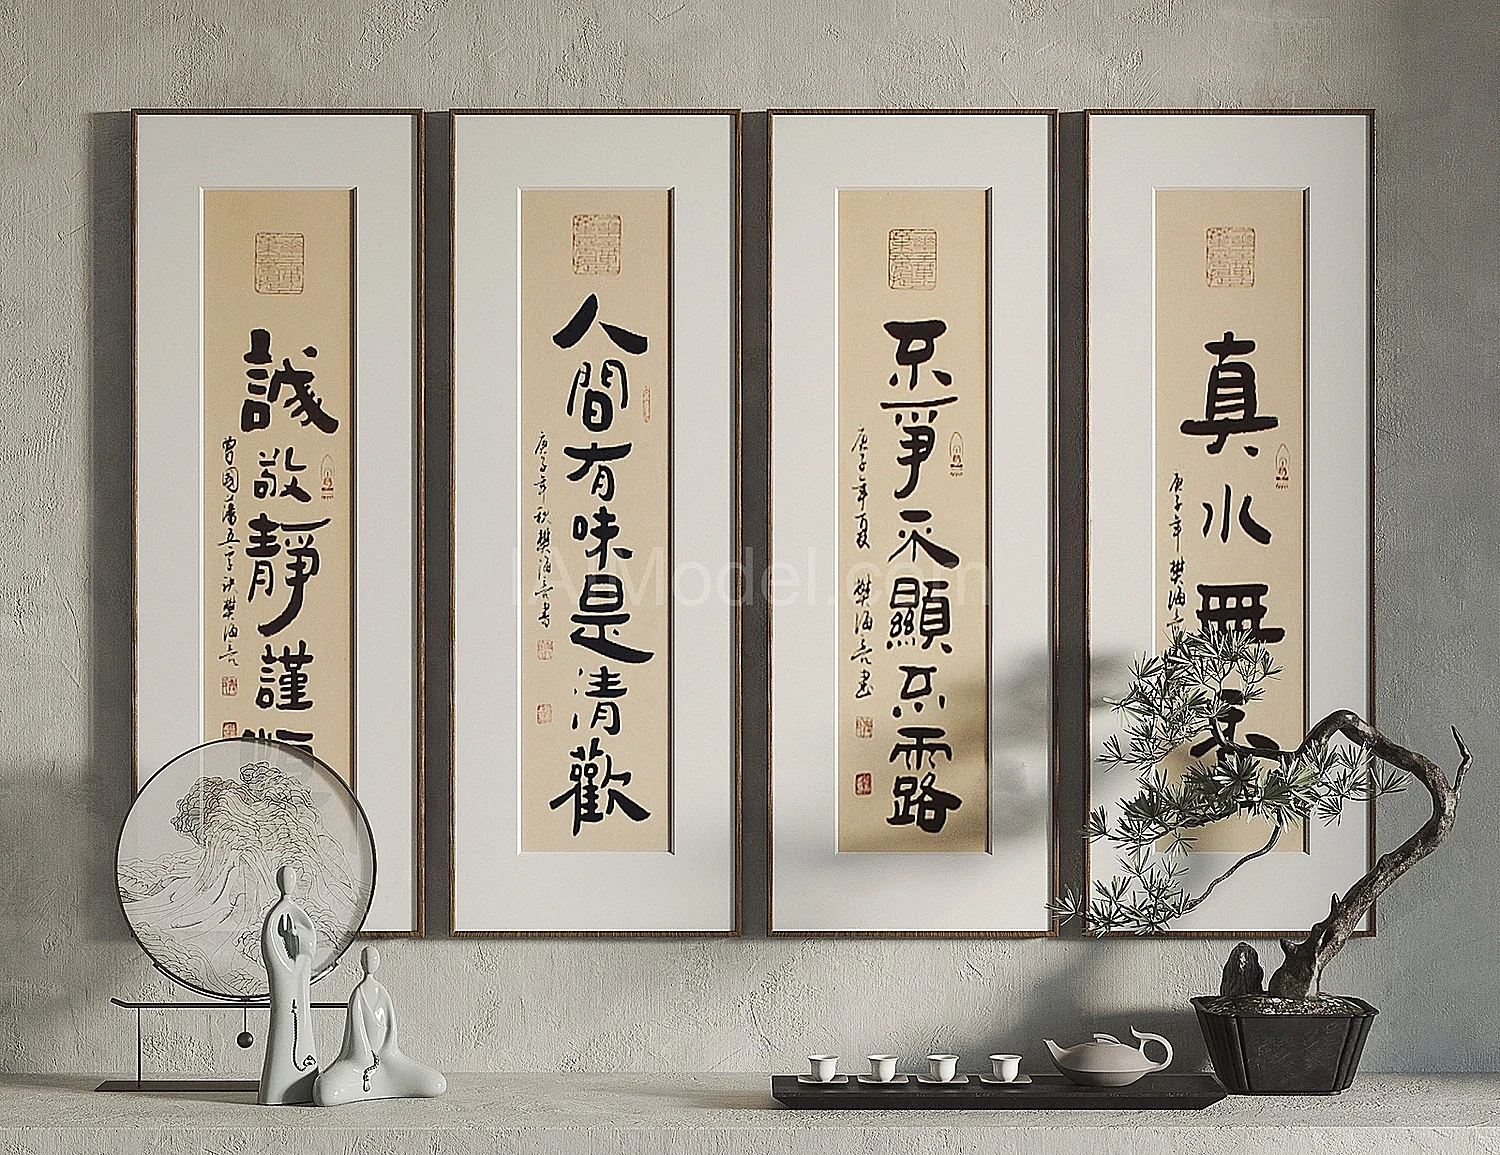 誠敬靜謹
曾國藩五字訣樊海亮
人間有味是清歡
庚子年秋樊海亮書
不爭不顯不露
庚子年夏樊海亮書
真水無
庚子年樊海